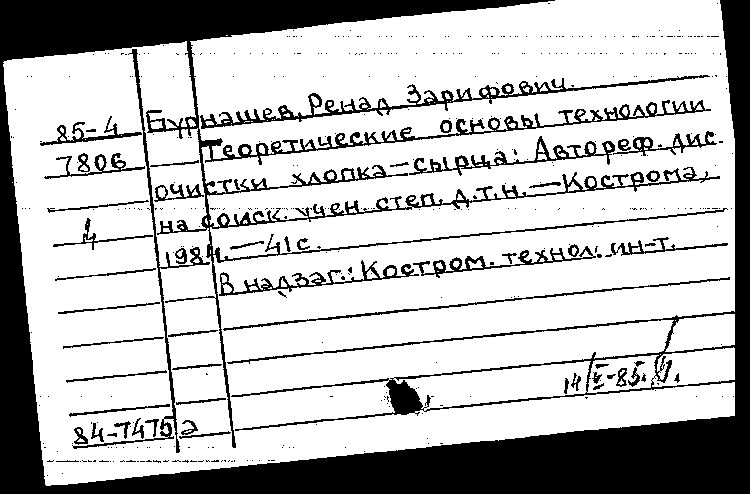 85-4 Бурнашев, Ренад Зарифович.
7806 Теоретические основы технологии
очистки хлопка-сырца: Автореф. дис.
4 на соиск. учен. степ. д.т.н. — Кострома,
1984. — 41с.
В надзаг.: Костром. технол. ин-т.
14/V-85.
84-7475 а